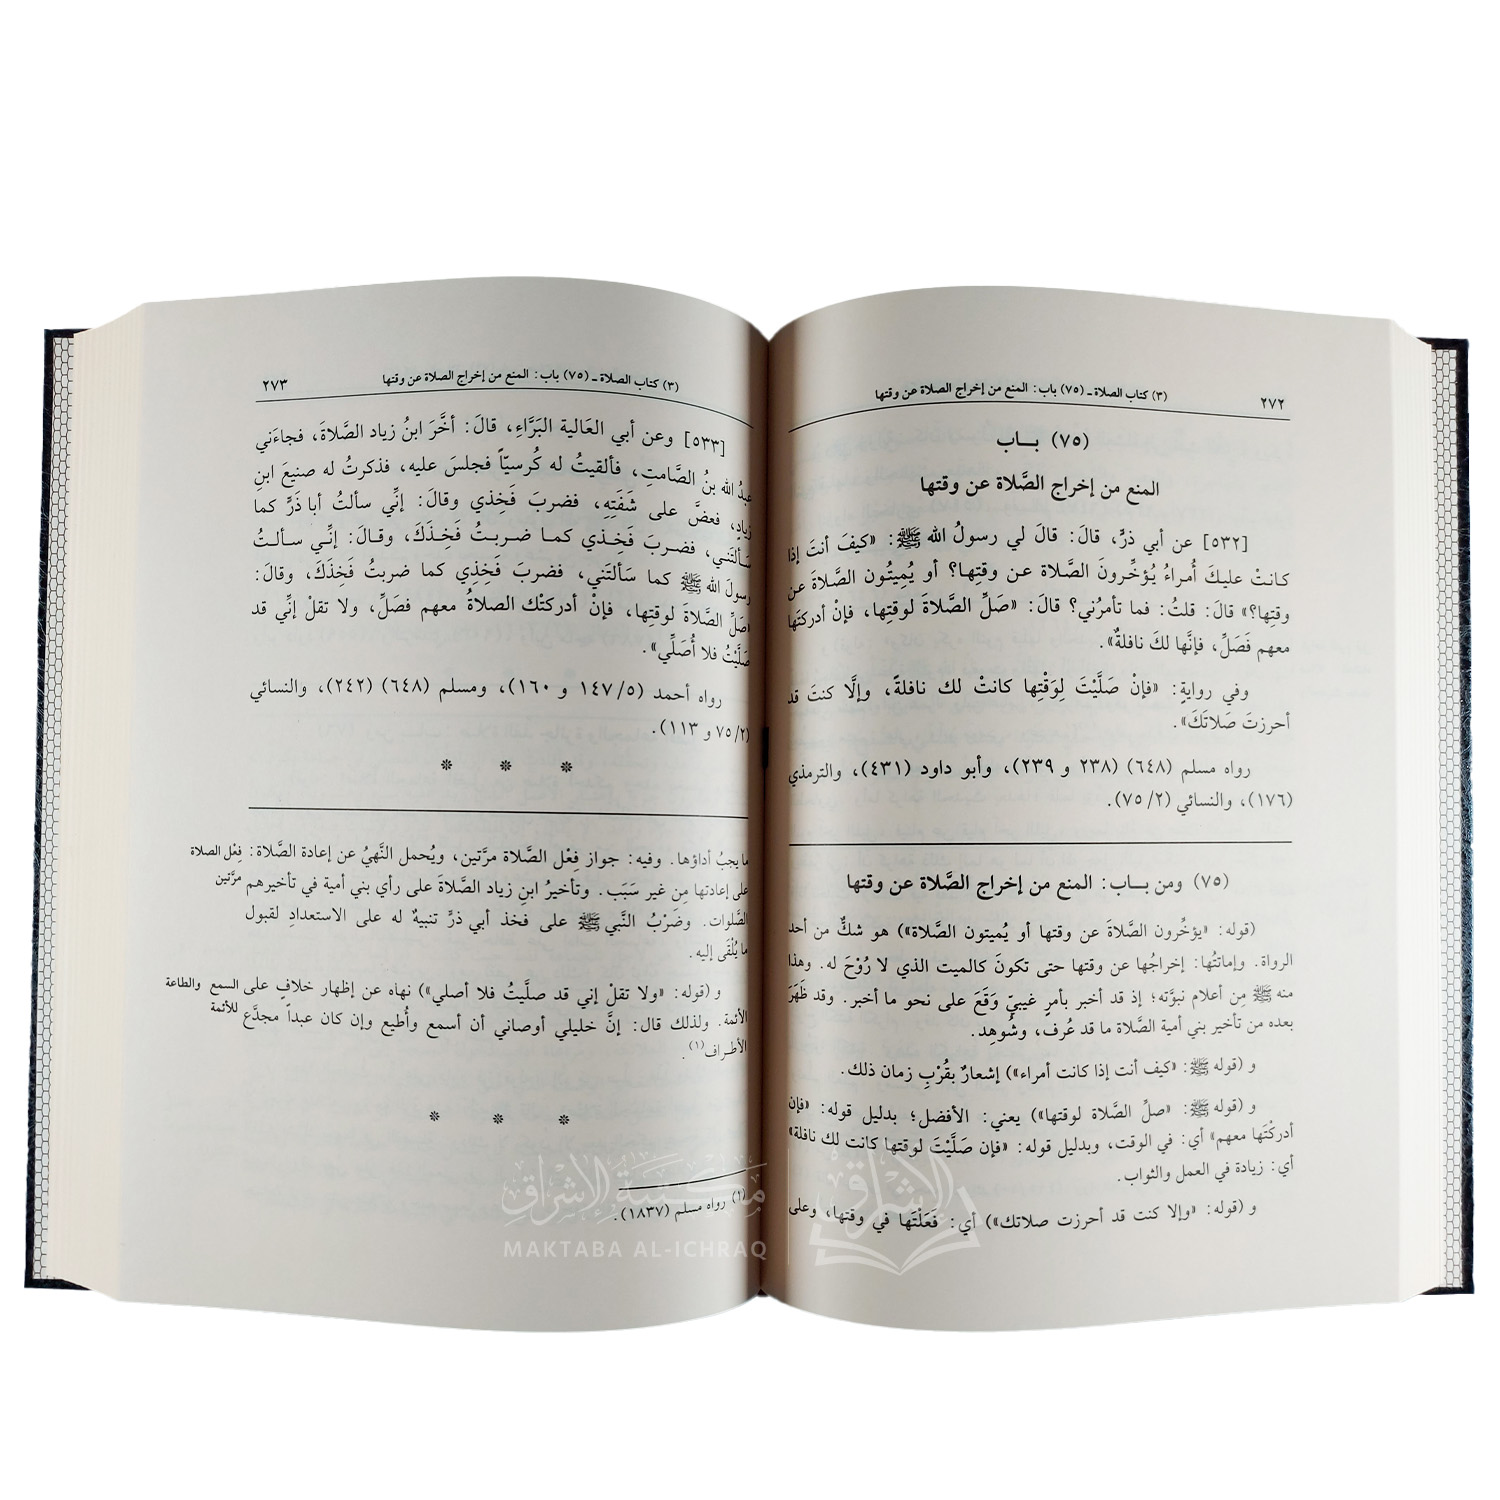 ٢٧٢
(٣) كتاب الصلاة ـ (٧٥) باب: المنع من إخراج الصلاة عن وقتها
(٧٥) بـاب
المنع من إخراج الصَّلاة عن وقتها
[٥٣٢] عن أبي ذرٍّ، قالَ: قالَ لي رسولُ الله ﷺ: «كيفَ أنتَ إذا
كانتْ عليكَ أُمراءُ يُؤخِّرونَ الصَّلاة عن وقتِها؟ أو يُمِيتُون الصَّلاةَ عن
وقتِها؟» قالَ: قلتُ: فما تأمرُني؟ قالَ: «صَلِّ الصَّلاةَ لوقتِها، فإنْ أدركتَها
معهم فَصَلِّ، فإنَّها لكَ نافلةٌ».
وفي روايةٍ: «فإنْ صَلَّيْتَ لِوَقْتِها كانتْ لك نافلةً، وإلَّا كنتَ قد
أحرزتَ صَلاتَكَ».
رواه مسلم (٦٤٨) (٢٣٨ و ٢٣٩)، وأبو داود (٤٣١)، والترمذي
(١٧٦)، والنسائي (٧٥/٢).
(٧٥) ومن بـاب: المنع من إخراج الصَّلاة عن وقتها
(قوله: «يؤخِّرون الصَّلاةَ عن وقتها أو يُميتون الصَّلاة») هو شكٌّ من أحد
الرواة. وإماتتُها: إخراجُها عن وقتها حتى تكونَ كالميت الذي لا رُوْحَ له. وهذا
منه ﷺ مِن أعلام نبوَّته؛ إذ قد أخبر بأمرٍ غيبيٍّ وَقَعَ على نحو ما أخبر. وقد ظَهَرَ
بعده من تأخير بني أمية الصَّلاة ما قد عُرف، وشُوهِد.
و (قوله ﷺ: «كيف أنت إذا كانت أمراء») إشعارٌ بقُرْبِ زمان ذلك.
و (قوله ﷺ: «صلِّ الصَّلاة لوقتها») يعني: الأفضل؛ بدليل قوله: «فإن
أدركْتَها معهم» أي: في الوقت، وبدليل قوله: «فإن صَلَّيْتَ لوقتها كانت لك نافلة»
أي: زيادة في العمل والثواب.
و (قوله: «وإلا كنت قد أحرزت صلاتك») أي: فَعَلْتَها في وقتها، وعلى
(٣) كتاب الصلاة ـ (٧٥) باب: المنع من إخراج الصلاة عن وقتها
٢٧٣
[٥٣٣] وعن أبي العَالية البَرَّاءِ، قالَ: أخَّرَ ابنُ زياد الصَّلاةَ، فجاءَني
عبدُ الله بنُ الصَّامتِ، فألقيتُ له كُرسيّاً فجلسَ عليه، فذكرتُ له صنيعَ ابنِ
زيادٍ، فعضَّ على شَفَتِهِ، فضربَ فَخِذي وقالَ: إنِّي سألتُ أبا ذَرٍّ كما
سَألتَني، فضـربَ فَخِـذي كمـا ضـربـتُ فَخِـذَكَ، وقـالَ: إنِّـي سـألـتُ
رسولَ الله ﷺ كما سَألتَني، فضربَ فَخِذِي كما ضربتُ فَخِذَكَ، وقالَ:
«صَلِّ الصَّلاةَ لوقتِها، فإنْ أدركتْك الصلاةُ معهم فصَلِّ، ولا تقلْ إنِّي قد
صَلَّيْتُ فلا أُصَلِّي».
رواه أحمد (١٤٧/٥ و ١٦٠)، ومسلم (٦٤٨) (٢٤٢)، والنسائي
(٧٥/٢ و ١١٣).
* * *
ما يجبُ أداؤها. وفيه: جواز فِعْل الصَّلاة مرَّتين، ويُحمل النَّهيُ عن إعادة الصَّلاة: فِعْل الصلاة
على إعادتها مِن غير سَبَب. وتأخيرُ ابنِ زياد الصَّلاةَ على رأي بني أمية في تأخيرهم مرَّتين
الصَّلوات. وضَرْبُ النَّبي ﷺ على فخذ أبي ذرٍّ تنبيهٌ له على الاستعدادِ لقبول
ما يُلْقَى إليه.
و (قوله: «ولا تقل إني قد صليتُ فلا أصلي») نهاه عن إظهار خلافٍ على السمع والطاعة
الأئمة. ولذلك قال: إنَّ خليلي أوصاني أن أسمع وأُطيع وإن كان عبداً مجدَّع للأئمة
الأطـراف(١).
* * *
(١) رواه مسلم (١٨٣٧).
مكتبة الإشراق
MAKTABA AL-ICHRAQ
الإشراق